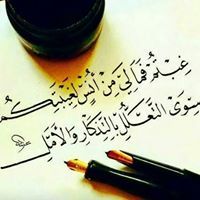 غِبْتُمْ فَمَا لِيَ مِنْ أُنْسٍ لِغَيْبَتِكُمْ
سِوَى التَّعَلُّلِ بِالتَّذْكَارِ وَالأَمَلِ